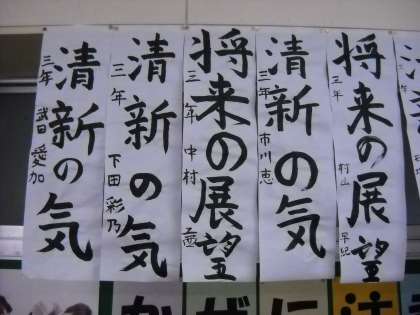 将来の展望
三年 村山
清新の気
三年 市川 恵
将来の展望
三年 中村
清新の気
三年 下田 彩乃
清新の気
三年 武田 愛加